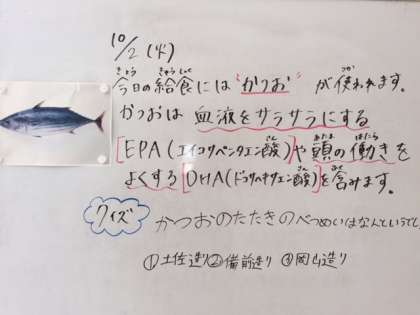 10/2 (火)
きょう きゅうしょく つか
今日の給食には“かつお”が使われます。
かつおは血液をサラサラにする
さん あたま はたら
[EPA(エイコサペンタエン酸)や頭の働きを
さん ふく
よくする[DHA(ドコサヘキサエン酸)を含みます。
クイズ かつおのたたきのべつめいはなんというでし
①土佐造り②備前造り ③岡山造り